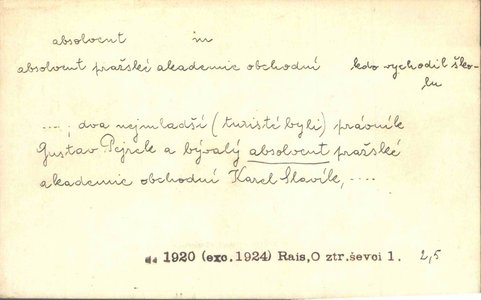 absolvent in
absolvent pražské akademie obchodní kdo vychodil ško-
lu
....; dva nejmladší (turisté byli) právník
Gustav Pejrek a bývalý absolvent pražské
akademie obchodní Karel Slavík, ....
1920 (exc.1924) Rais,O ztr.ševci 1. 2,5